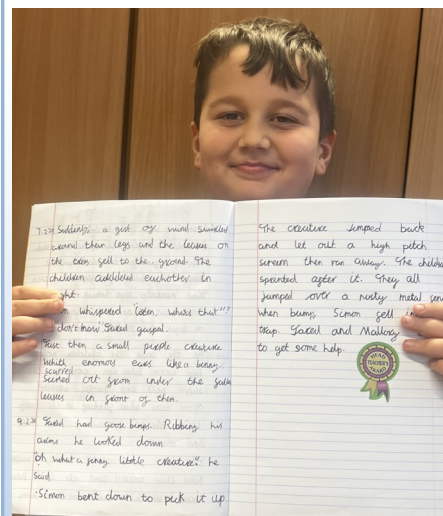 7.2.24 Suddenly, a gust of wind swirled
around their legs and the leaves on
the trees fell to the ground. The
children eachother in
ght.
n whispered "listen, whats that"?
I don't know Jared gasped.
Just then a small people creature
which enormos ears like a bunny.
scurried
out from under the
leaves in front of them.
9.2.24 Jared had goose bumps. Ribbing his
arms he looked down.
"oh what a funny little creature". he
said.
Simon bent down to pick it up.
The creature jumped back
and let out a high pitch
scream then ran away. The childre
sprinted after it. They all
jumped over a rusty metal
when bump, Simon fell in
trap. Jared and Mallory
to get some help.
HEAD
TEACHER'S
AWARD